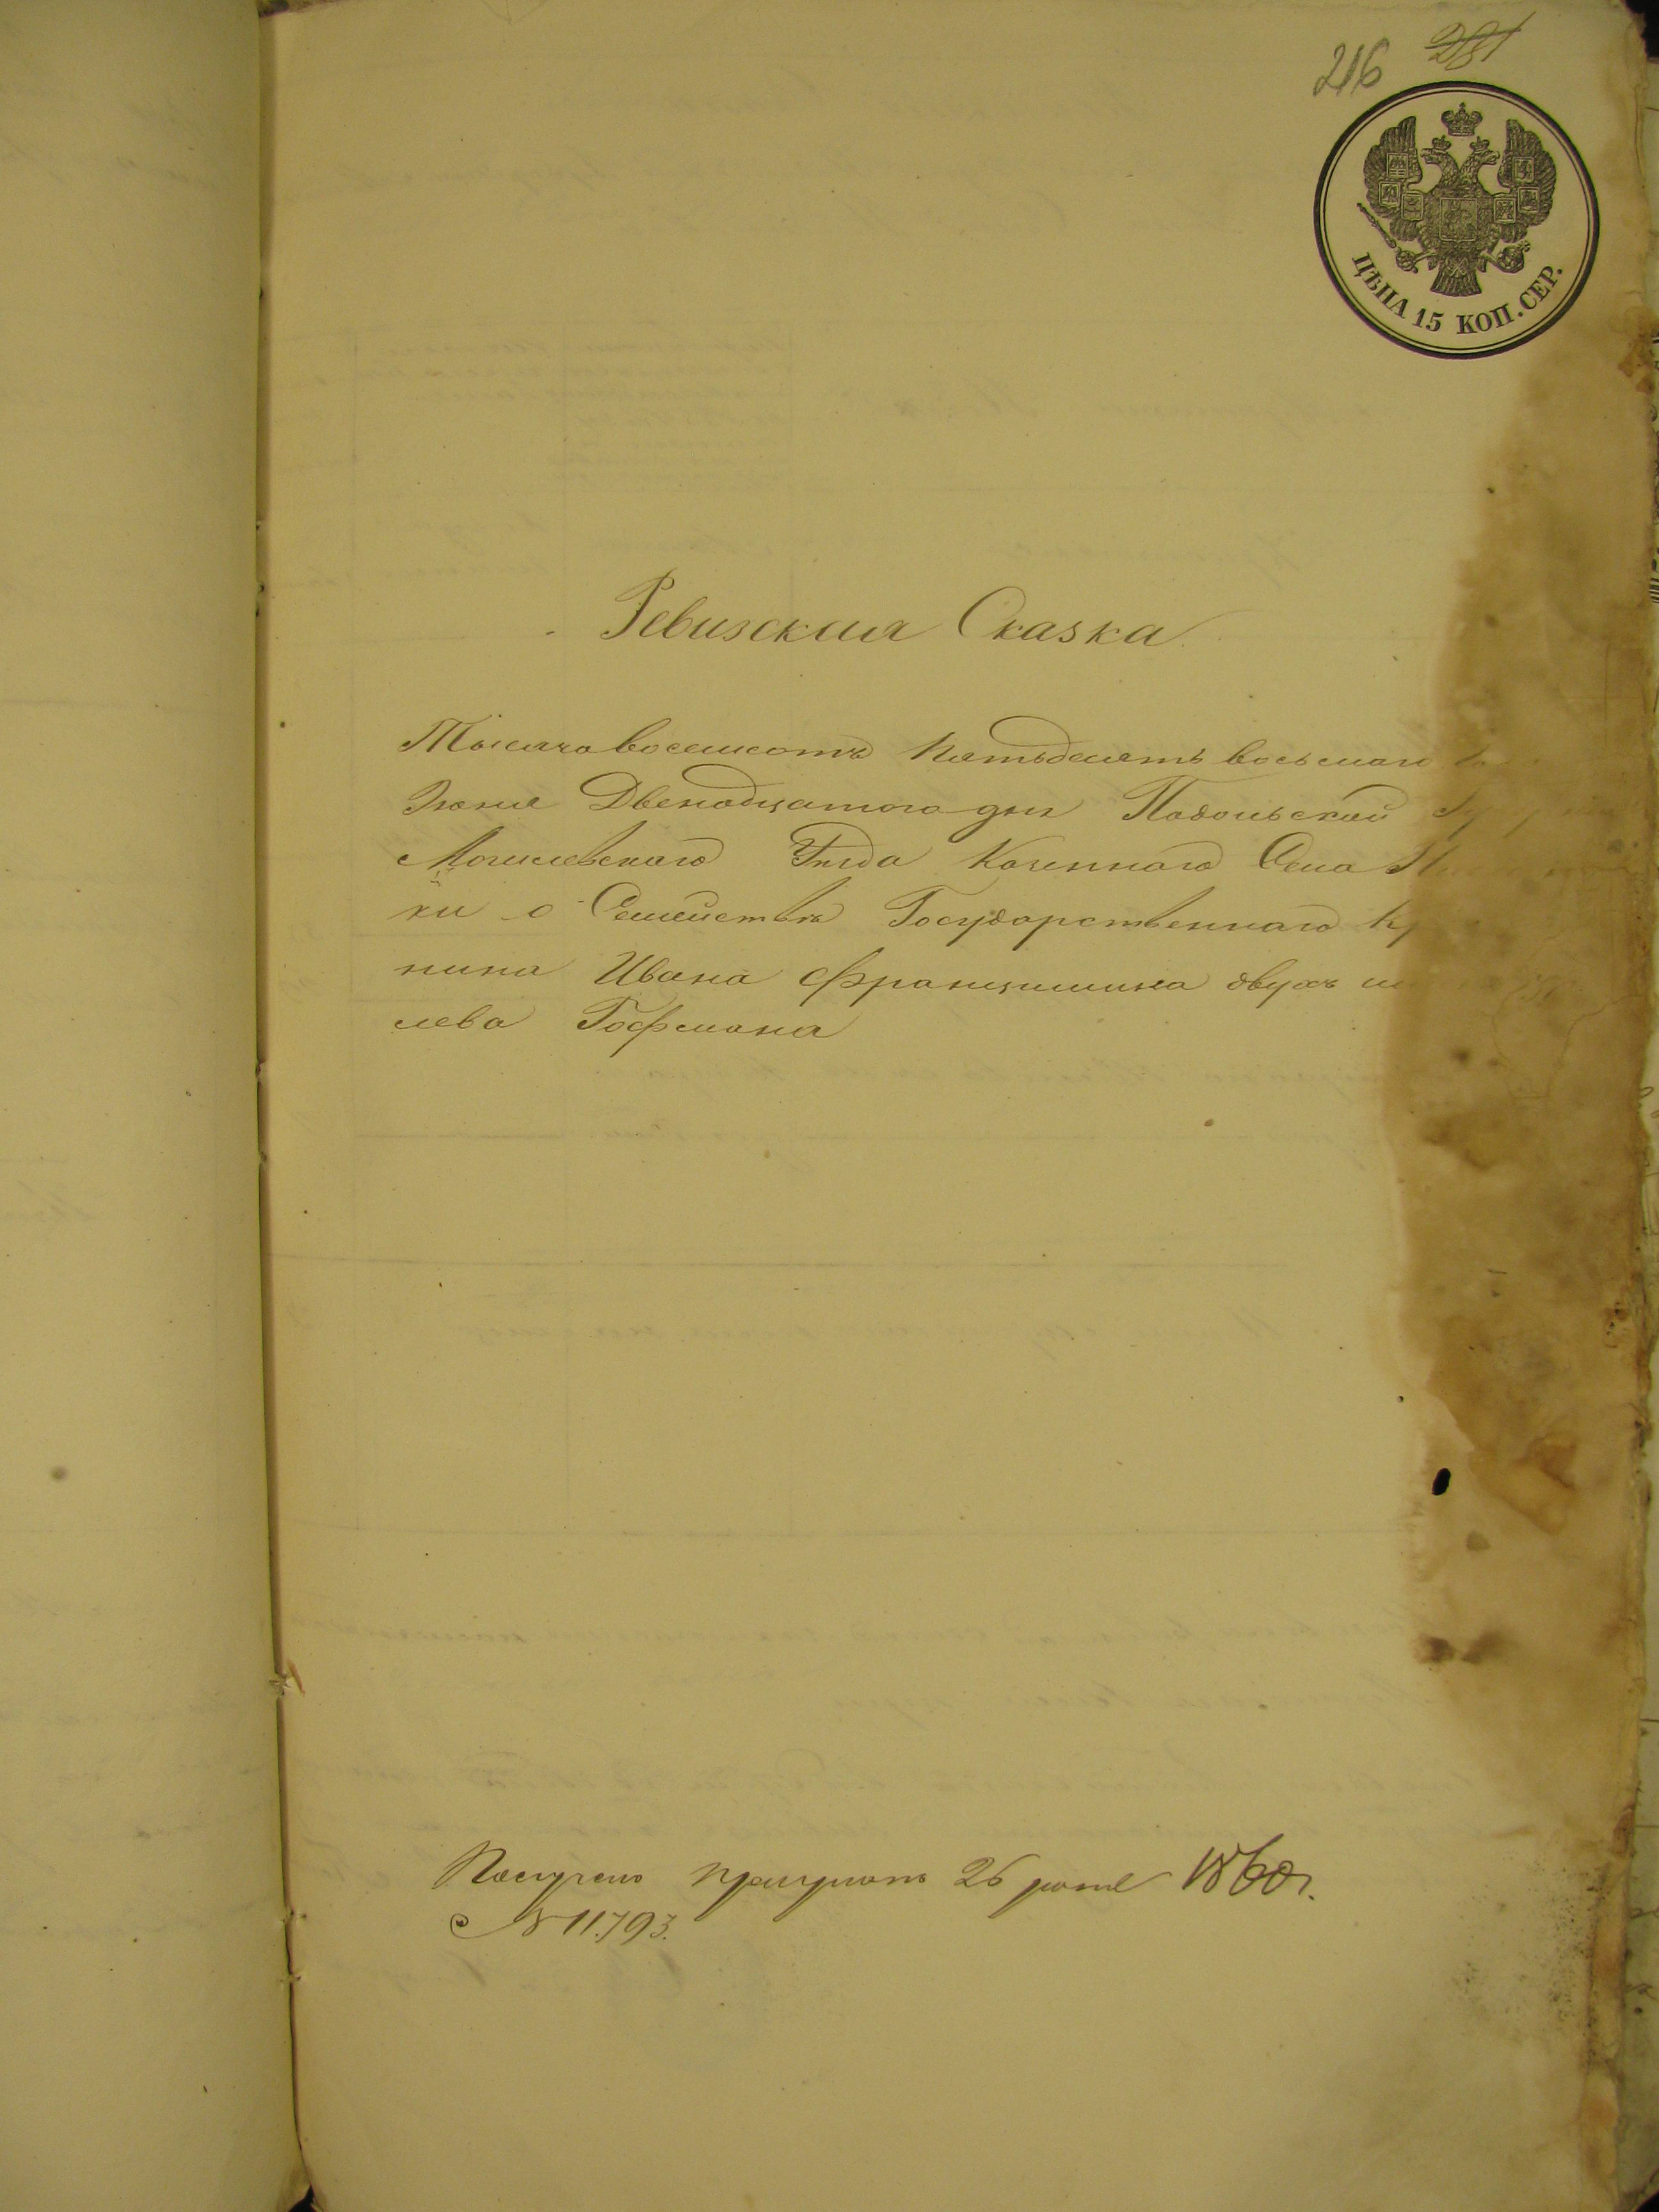 216
ЦѢНА 15 КОП. СЕР.
Ревизская Сказка
Тысяча восемсотъ пятьдесятъ восьмаго
Іюня Двенадцатого дня Подольской
Могилевскаго Уѣзда Казеннаго Села
ки о Семействѣ Государственнаго Кр
нина Ивана Францишика двухъ
лева Гофмана
26 1860г.
№ 11.793.